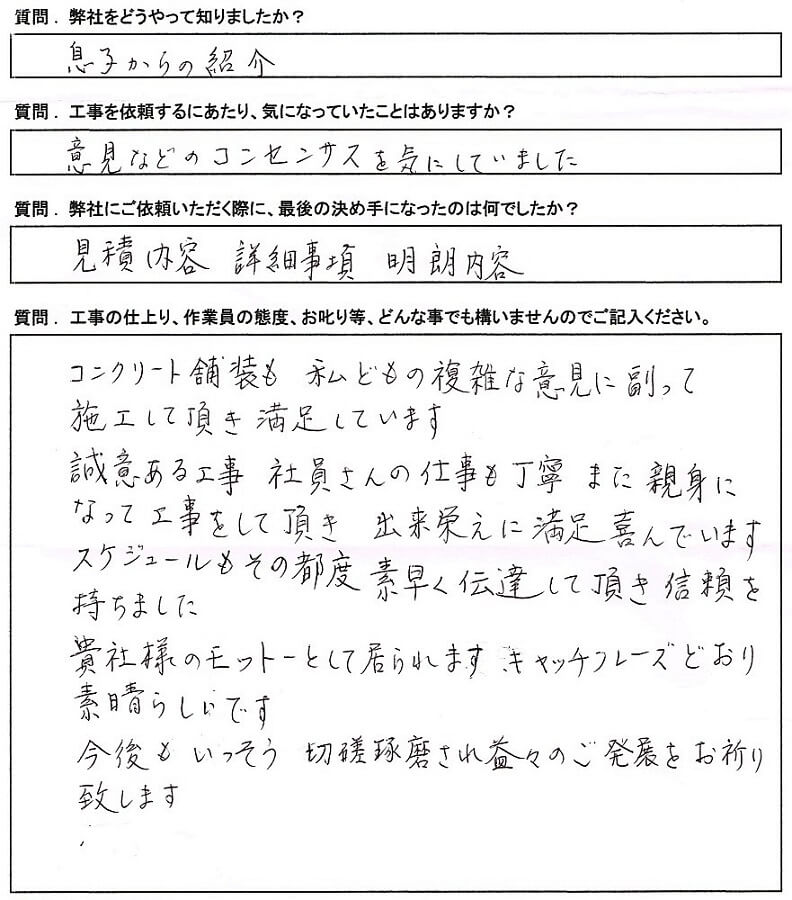 質問．弊社をどうやって知りましたか？
息子からの紹介
質問．工事を依頼するにあたり、気になっていたことはありますか？
意見などのコンセンサスを気にしていました
質問．弊社にご依頼いただく際に、最後の決め手になったのは何でしたか？
見積内容　詳細事項　明朗内容
質問．工事の仕上り、作業員の態度、お叱り等、どんな事でも構いませんのでご記入ください。
コンクリート舗装も　私どもの複雑な意見に副って
施工して頂き満足しています
誠意ある工事　社員さんの仕事も丁寧　また親身に
なって工事をして頂き　出来栄えに満足喜んでいます
スケジュールもその都度素早く伝達して頂き信頼を
持ちました
貴社様のモットーとして居られますキャッチフレーズどおり
素晴らしいです
今後もいっそう　切磋琢磨され益々のご発展をお祈り
致します